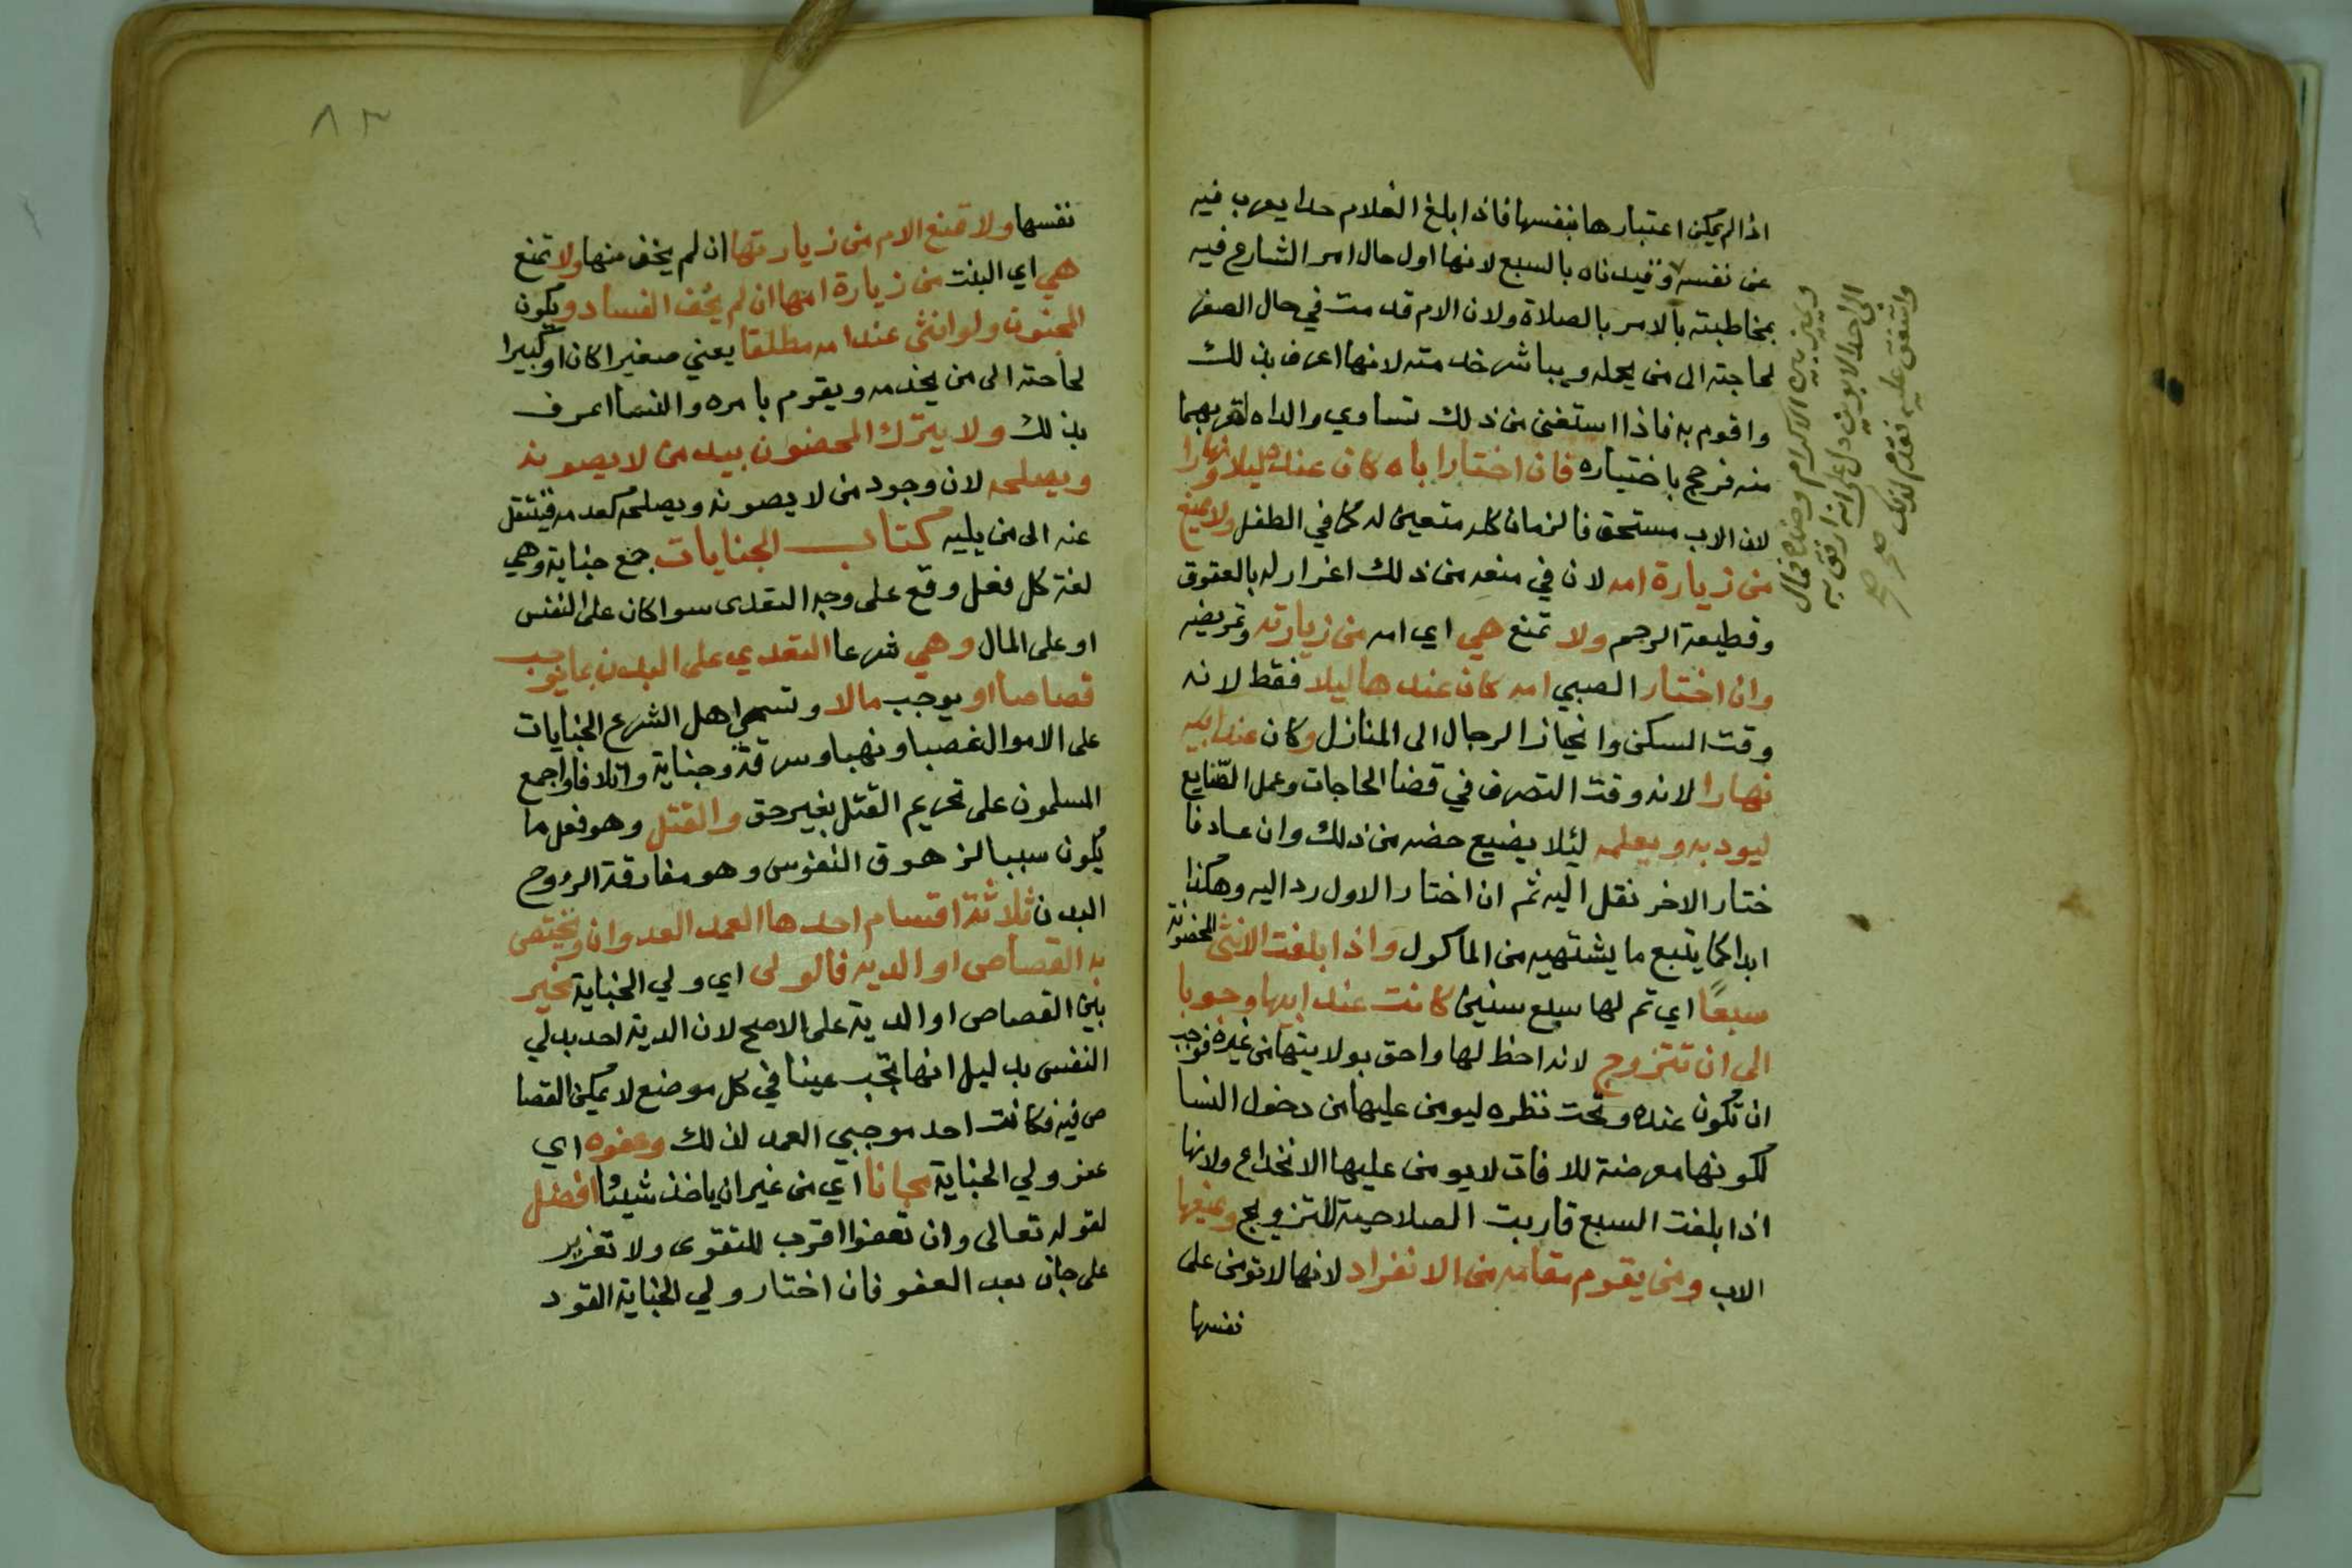 اذا لم يمكن اعتبارها بنفسها فاذا بلغ الغلام حدا يعرب فيه
عن نفسه وقيدناه بالسبع لانها اول حال امر الشارع فيه
بمخاطبته بالامر بالصلاة ولان الام قدمت في حال الصغر
لحاجته الى من يحمله ويباشر خدمته لانها اعرف بذلك
واقوم به فاذا استغنى من ذلك تساوي والداه لقربهما
منه فرجح باختياره فان اختار اباه كان عنده ليلا ونهارا
لان الاب مستحق فالزمان كله متعين له كما في الطفل ولا يمنع
من زيارة امه لان في منعه من ذلك اغرار له بالعقوق
وقطيعة الرحم ولا تمنع هي اي امه من زيارته وتمريضه
وان اختار الصبي امه كان عندها ليلا فقط لانه
وقت السكن وانحياز الرجال الى المنازل وكان عند ابيه
نهارا لانه وقت التصرف في قضا الحاجات وعمل الصنايع
ليودبه ويعلمه لئلا يضيع حضه من ذلك وان عاد فا
ختار الاخر نقل اليه ثم ان اختار الاول رد اليه وهكذا
ابدا كما يتبع ما يشتهيه من الماكول واذا بلغت الانثى المحضونة
سبعًا اي تم لها سبع سنين كانت عند ابيها وجوبا
الى ان تتزوج لانه احظ لها واحق بولايتها من غيره فوجب
ان تكون عنده وتحت نظره ليومن عليها من دخول النسا
لكونها معرضة للافات لا يومن عليها الانخداع ولانها
اذا بلغت السبع قاربت الصلاحية للتزويج ويمنعها
الاب ومن يقوم مقامه من الانفراد لانها لا تومن على
نفسها
ويميز بين الاكرام وضده فمال
الى احد الابوين دل على انه ارفق به
واشفق عليه فقدم لذلك صح
٨٣
نفسها ولا تمنع الام من زيارتها ان لم يخف منها ولا تمنع
هي اي البنت من زيارة امها ان لم يخف الفساد ويكون
المجنون ولو انثى عند امه مطلقا يعني صغيرا كان او كبيرا
لحاجته الى من يخدمه ويقوم بامره والنسا اعرف
بذلك ولا يترك المحضون بيد من لا يصونه
ويصلحه لان وجود من لا يصونه ويصلحه كعدمه فينتقل
عنه الى من يليه كتاب الجنايات جمع جناية وهي
لغة كل فعل وقع على وجه التعدى سوا كان على النفس
او على المال وهي شرعا التعدي على البدن بما يوجب
قصاصا او يوجب مالا وتسمي اهل الشرع الجنايات
على الاموال غصبا ونهبا وسرقة وجناية واتلافا واجمع
المسلمون على تحريم القتل بغير حق والقتل وهو فعل ما
يكون سببا لزهوق النفوس وهو مفارقة الروح
البدن ثلاثة اقسام احدها العمد العدوان ويختص
به القصاص او الدية فالولى اي ولي الجناية مخير
بين القصاص او الدية على الاصح لان الدية احد بدلي
النفس بدليل انها تجب عينا في كل موضع لا يمكن القصا
ص فيه فكانت احد موجبي العمد لذلك وعفوه اي
عفو ولي الجناية مجانا اي من غير ان ياخذ شيئا افضل
لقوله تعالى وان تعفوا اقرب للتقوى ولا تعزير
على جان بعد العفو فان اختار ولي الجناية القود